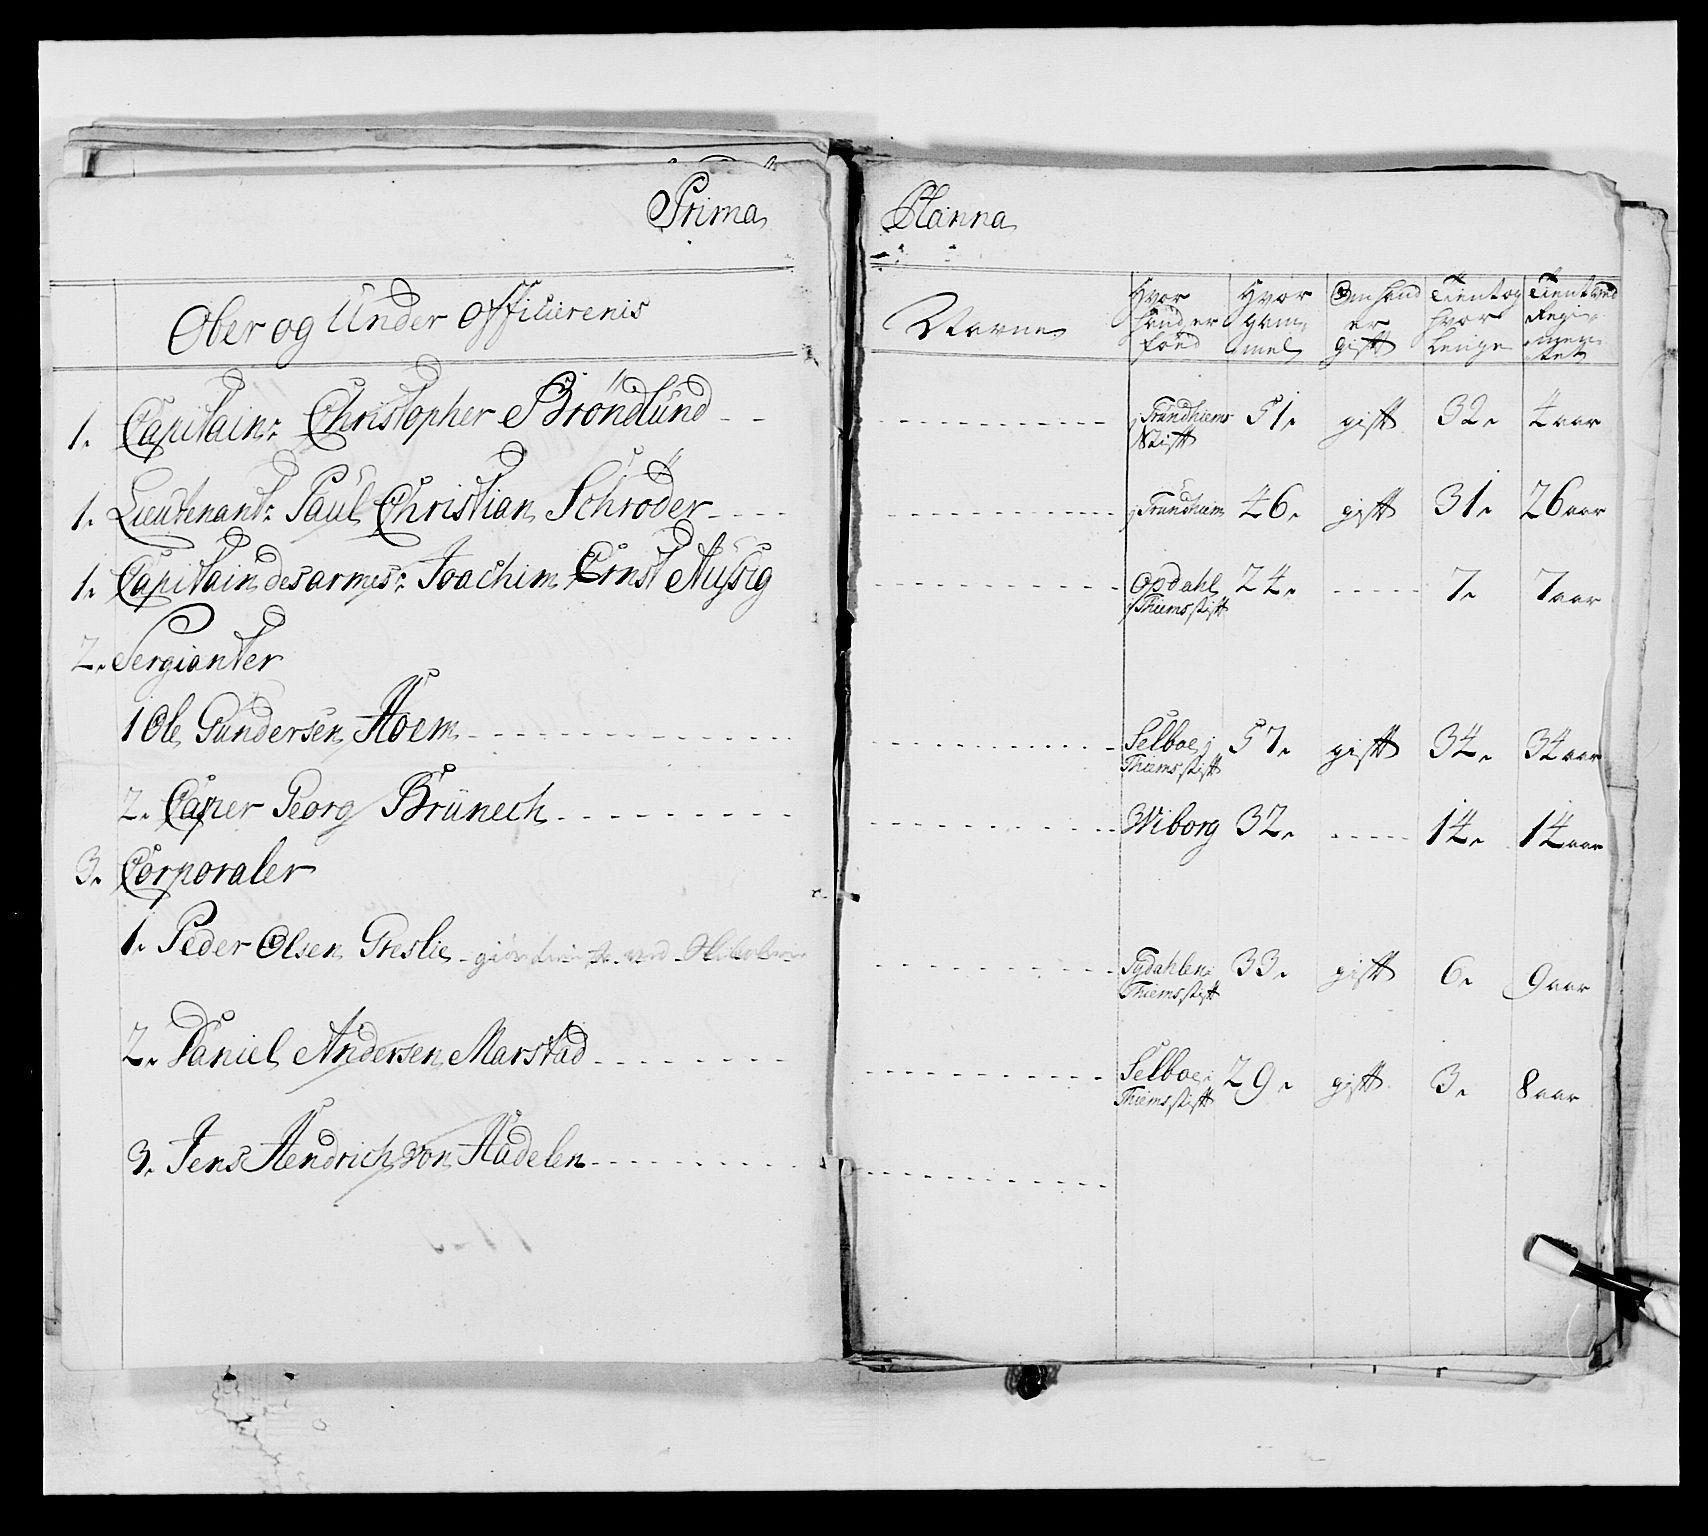 Prima Plana
Ober og Under Officierenis Navne
Hvor hand er fød
Hvor gammel
Om hand er gift
Tient og hvor lenge
Tient ved Regimentet
1. Capitain: Christopher Bröndlund i Trundhiems Stift 51. gift 32. 4 aar
1. Lieutenant: Paul Christian Schrøder i Trundhiem 46. gift 31. 26 aar
1. Capitain des armes: Joachim Ernst Hysing Opdahl i Thiems stift 24. 7. 7 aar
2. Sergianter
1 Ole Gundersen Hoem Selboe i Thiems stift 57. gift 34. 34 aar
2. Casper Georg Brünech Wiborg 32. 14. 14 aar
3. Corporaler
1. Peder Olsen Greslie Tydahlen i Thiems stift 33. gift 6. 9 aar
2. Daniel Andersen Marstad Selboe i Thiems stift 29. gift 3. 8 aar
3. Jens Hendrich von Hadelen